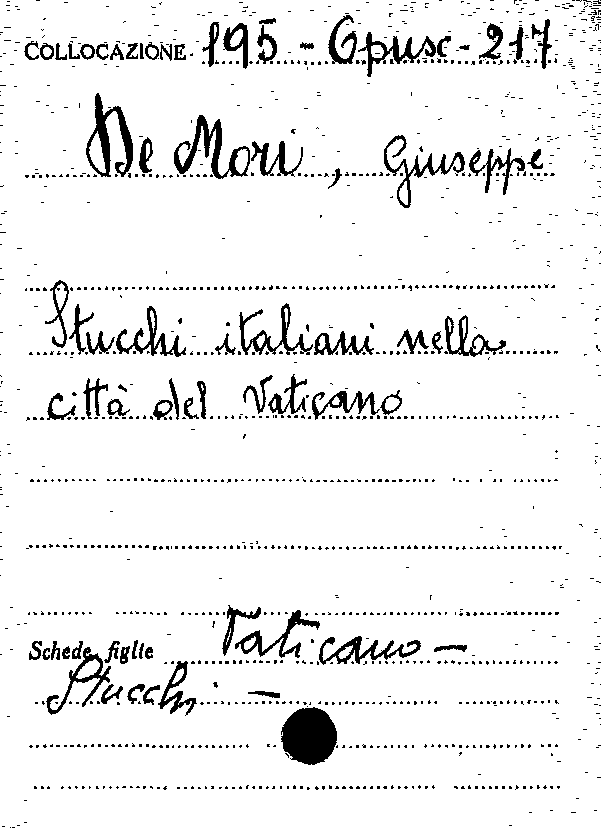 COLLOCAZIONE 195 - Opusc - 217
De Mori, Giuseppe
Stucchi italiani nella
città del Vaticano
Schede figlie Vaticano -
Stucchi -